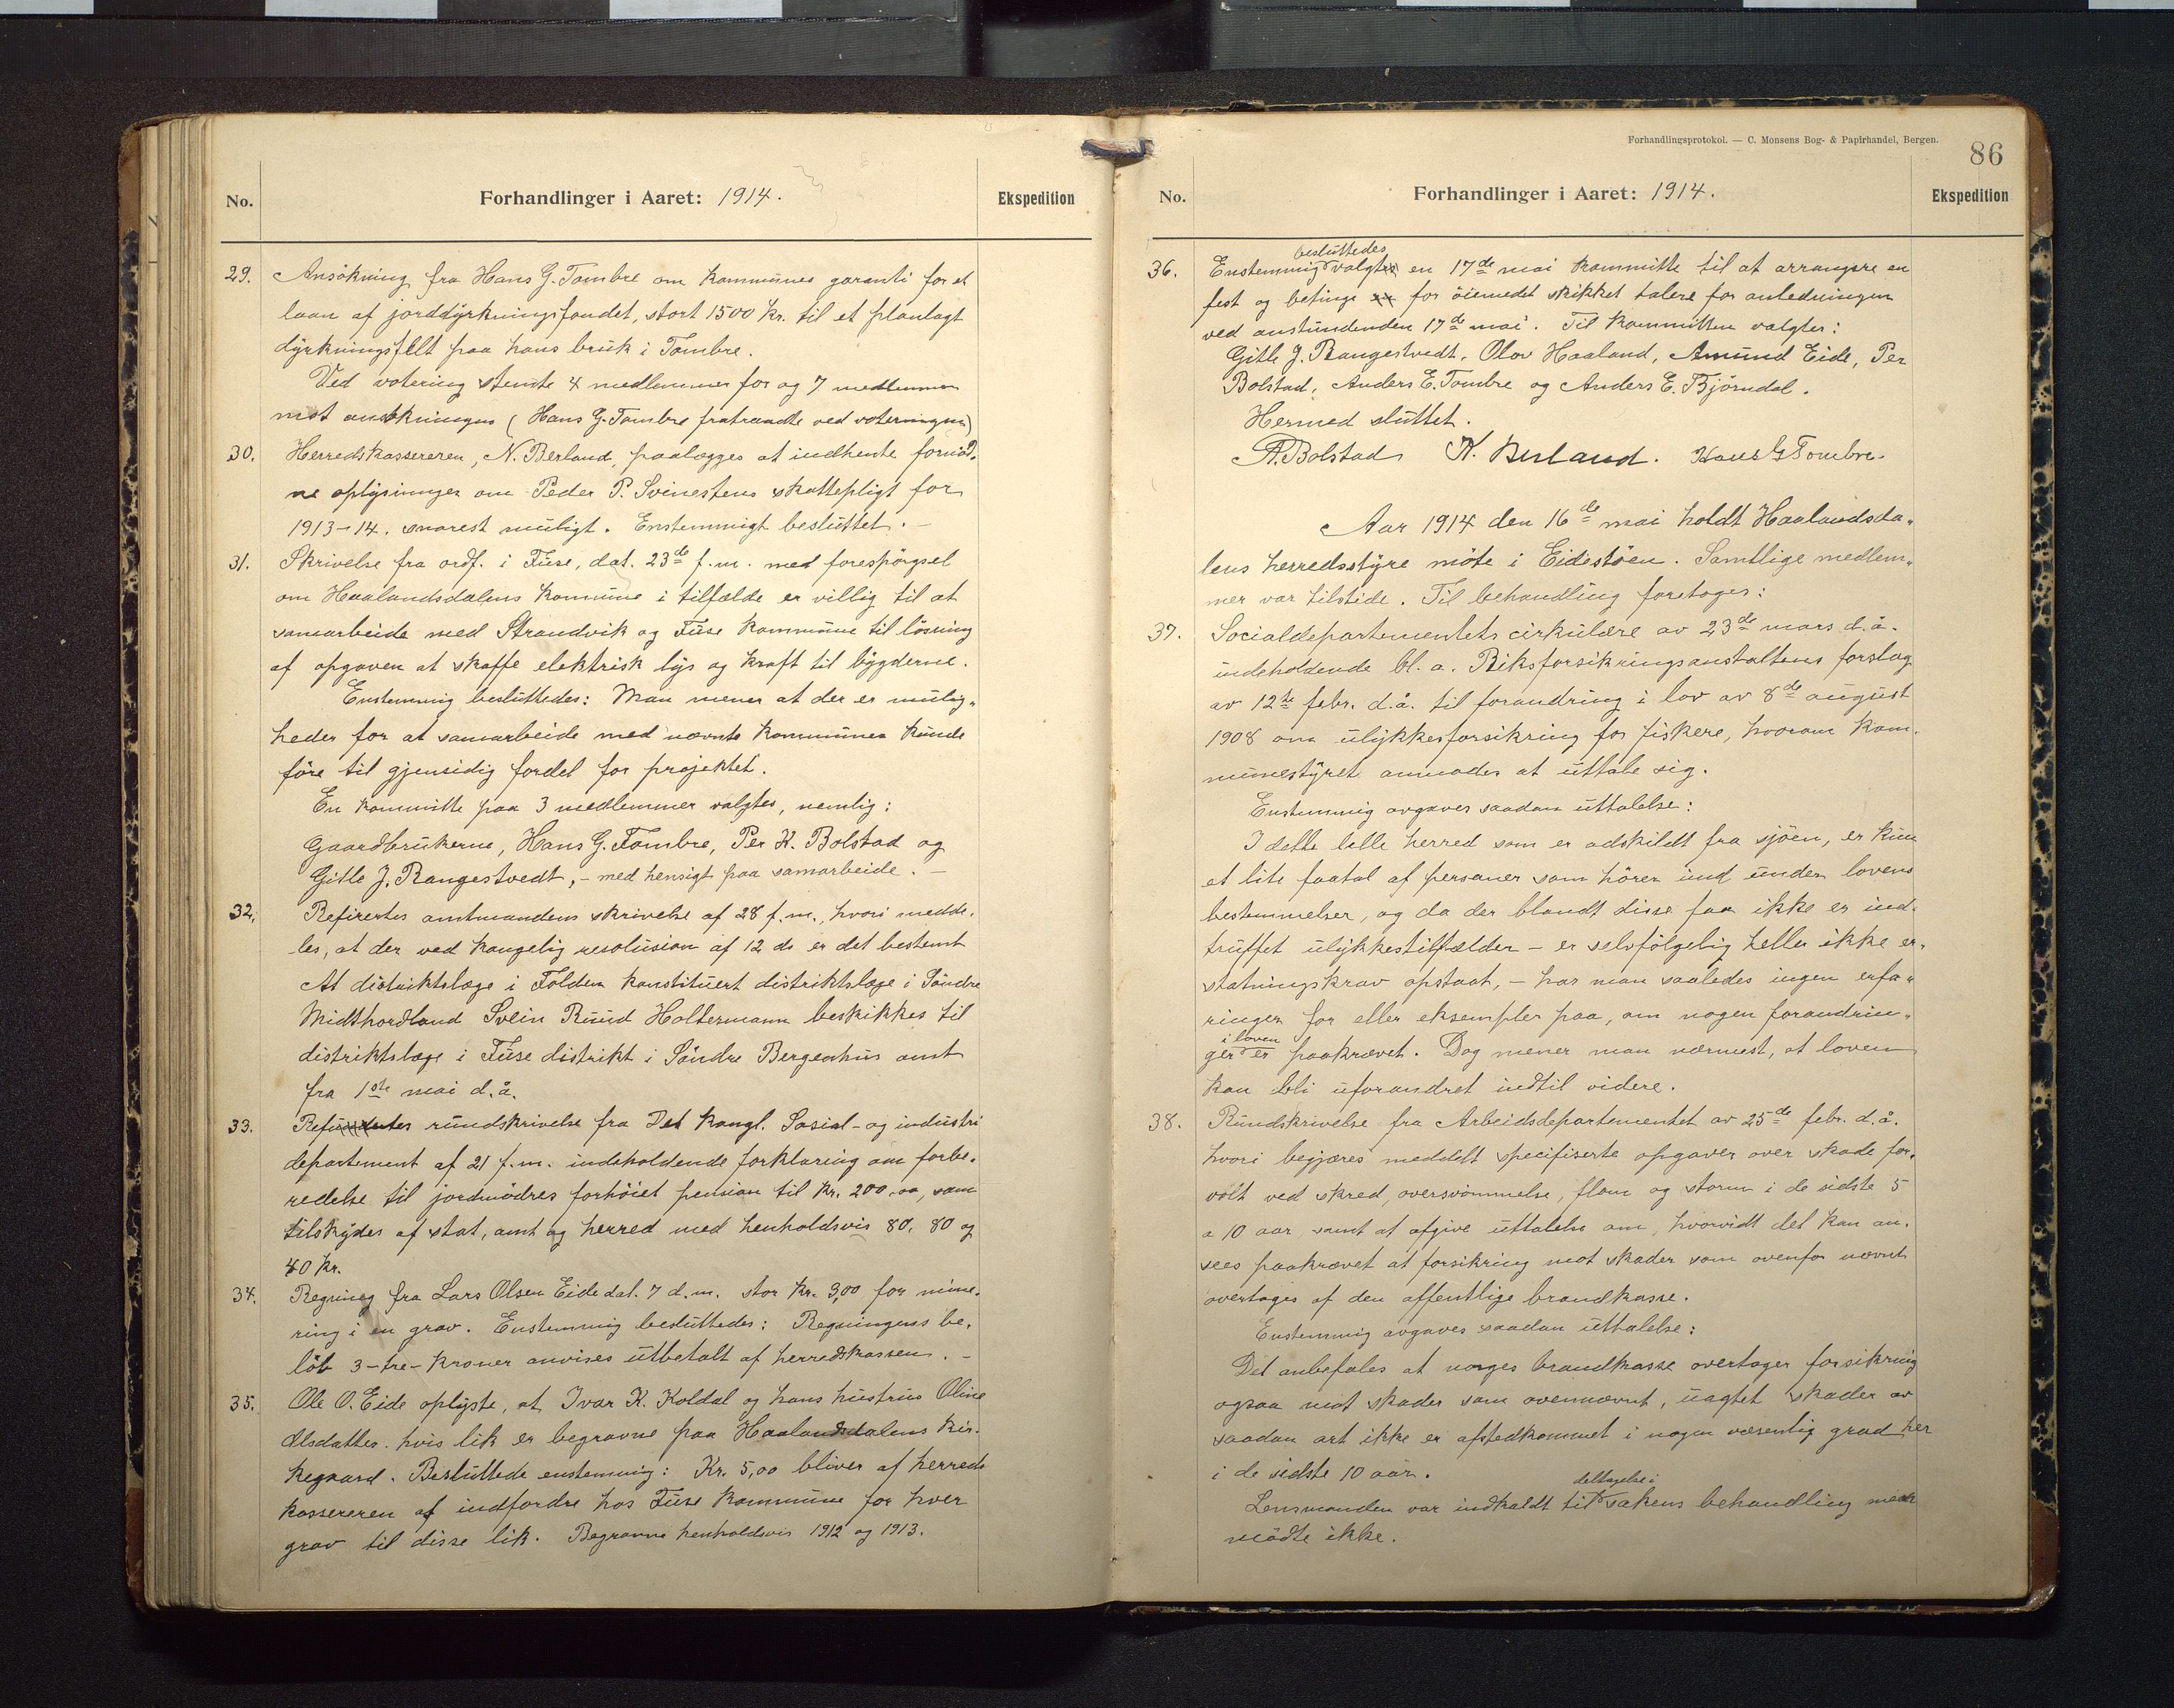 No.
Forhandlinger i Aaret: 1914.
Ekspedition
29. Ansökning fra Hans G. Tombre om kommunes garanti for et
laan af jorddyrkningsfondet, stort 1500 kr. til et planlagt
dyrkningsfelt paa hans bruk i Tombre.
Ved votering stemte 4 medlemmer for og 7 medlemmer
mot ansökningen (Hans G. Tombre fratraadte ved voteringen)
30. Herredskassereren, N. Berland, paalægges at indhente fornöd-
ne oplysninger om Peder P. Svinestens skattepligt for
1913-14. snarest muligt. Enstemmigt besluttet. –
31. Skrivelse fra ordf. i Fuse, dat. 23de f.m. med forespörgsel
om Haalandsdalens kommune i tilfælde er villig til at
samarbeide med Strandvik og Fuse kommune til lösning
af opgaven at skaffe elektrisk lys og kraft til bygderne.
Enstemmig besluttedes: Man mener at der er mulig-
heder for at samarbeide med nævnte kommuner kunde
före til gjensidig fordel for projektet.
En kommitte paa 3 medlemmer valgtes, nemlig:
Gaardbrukerne, Hans G. Tombre, Per K. Bolstad og
Gitle J. Rangestvedt, – med hensigt paa samarbeide. –
32. Refirertes amtmandens skrivelse af 28 f.m., hvori medde-
les, at der ved kongelig resolusion af 12 ds er det bestemt
At distriktslæge i Folden konstituert distriktslæge i Söndre
Midthordland Svein Ruud Holtermann beskikkes til
distriktslæge i Fuse distrikt i Söndre Bergenhus amt
fra 1ste mai d.å.
33. rundskrivelse fra Det kongl. Sosial- og industri
departement af 21 f.m. indeholdende forklaring om forbe-
redelse til jordmödres forhöiet pension til kr. 200,00, som
tilskydes af stat, amt og herred med henholdsvis 80, 80 og
40 kr.
34. Regning fra Lars Olsen Eide dat. 7 d.m. stor kr. 3,00 for mine-
ring i en grav. Enstemmig besluttedes: Regningens be-
löb 3 – tre – kroner anvises utbetalt af herredskassen. –
35. Ole O. Eide oplyste, at Ivar K. Koldal og hans hustrus Oline
Olsdatter. hvis lik er begravne paa Haalandsdalens kir-
kegaard. Besluttede enstemmig: Kr. 5,00 bliver af herreds
kassereren at indfordre hos Fuse kommune for hver
grav til disse lik. Begravne henholdsvis 1912 og 1913.
Forhandlingsprotokol. — C. Monsens Bog- & Papirhandel, Bergen.
86
No.
Forhandlinger i Aaret: 1914.
Ekspedition
besluttedes
36. Enstemmig valgt en 17de mai kommitte til at arrangere en
fest og betinge for öiemedet skikket talere for anledningen
ved anstundenden 17de mai. Til kommitten valgtes:
Gitle J. Rangestvedt, Olov Haaland, Amund Eide, Per
Bolstad, Anders E. Tombre og Anders E. Björndal.
Hermed sluttet.
P. Bolstad K. Berland. Hans G Tombre.
Aar 1914 den 16de mai holdt Haalandsda-
lens herredsstyre möte i Eidestöen. Samtlige medlem-
mer var tilstide. Til behandling foretoges:
37. Socialdepartementets cirkulære av 23de mars d.å.
indeholdende bl. a. Riksforsikringsanstaltens forslag
av 12te febr. d.å. til forandring i lov av 8de august
1908 om ulykkesforsikring for fiskere, hvorom kom-
munestyret anmodes at uttale sig.
Enstemmig avgaves saadan uttalelse:
I dette lille herred som er adskildt fra sjöen, er kun
et lite faatal af personer som hörer ind under lovens
bestemmelser, og da der blandt disse faa ikke er ind-
truffet ulykkestilfælder – er selvfölgelig heller ikke er-
statningskrav opstaat, – har man saaledes ingen erfa-
ringer for eller eksempler paa, om nogen forandrin-
i loven
ger er paakrævet. Dog mener man nærmest, at loven
kan bli uforandret indtil videre.
38. Rundskrivelse fra Arbeidsdepartementet av 25de febr. d.å.
hvori begjæres meddelt specifiserte opgaver over skade for-
volt ved skred, oversvömmelse, flom og storm i de sidste 5
a 10 aar samt at afgive uttalelse om, hvorvidt det kan an-
sees paakrævet at forsikring mot skader som ovenfor nævnt
overtages af den offentlige brandkasse.
Enstemmig avgaves saadan uttalelse:
Det anbefales at norges brandkasse overtager forsikring
ogsaa mot skader som ovennævnt, uagtet skader av
saadan art ikke er afstedkommet i nogen væsentlig grad her
i de sidste 10 aar.
deltagelse i
Lensmanden var indkaldt til sakens behandling men
mödte ikke.